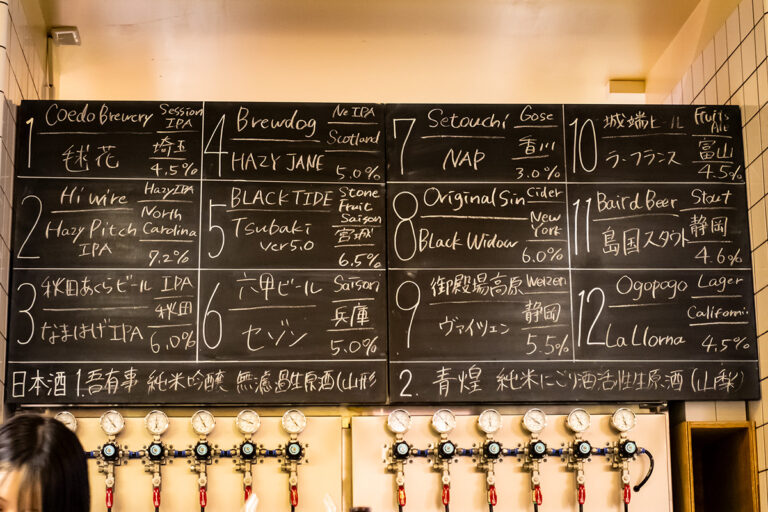 1 Coedo Brewery Session IPA
毬花 埼玉 4.5%
2 Hi wire Hazy IPA
Hazy Pitch IPA North Carolina 7.2%
3 秋田あくらビール IPA
なまはげIPA 秋田 6.0%
4 Brewdog Ne IPA
HAZY JANE Scotland 5.0%
5 BLACK TIDE Stone Fruit Saison
Tsubaki ver5.0 宮城 6.5%
6 六甲ビール Saison
セゾン 兵庫 5.0%
7 Setouchi Gose
NAP 香川 3.0%
8 Original Sin Cider
Black Widow New York 6.0%
9 御殿場高原 Weizen
ヴァイツェン 静岡 5.5%
10 城端ビール Fruits Ale
ラ・フランス 富山 4.5%
11 Baird Beer Stout
島国スタウト 静岡 4.6%
12 Ogopogo Lager
La Llorna California 4.5%
日本酒 1. 吾有事 純米吟醸 無濾過生原酒(山形
2. 青煌 純米にごり酒活性生原酒(山梨)